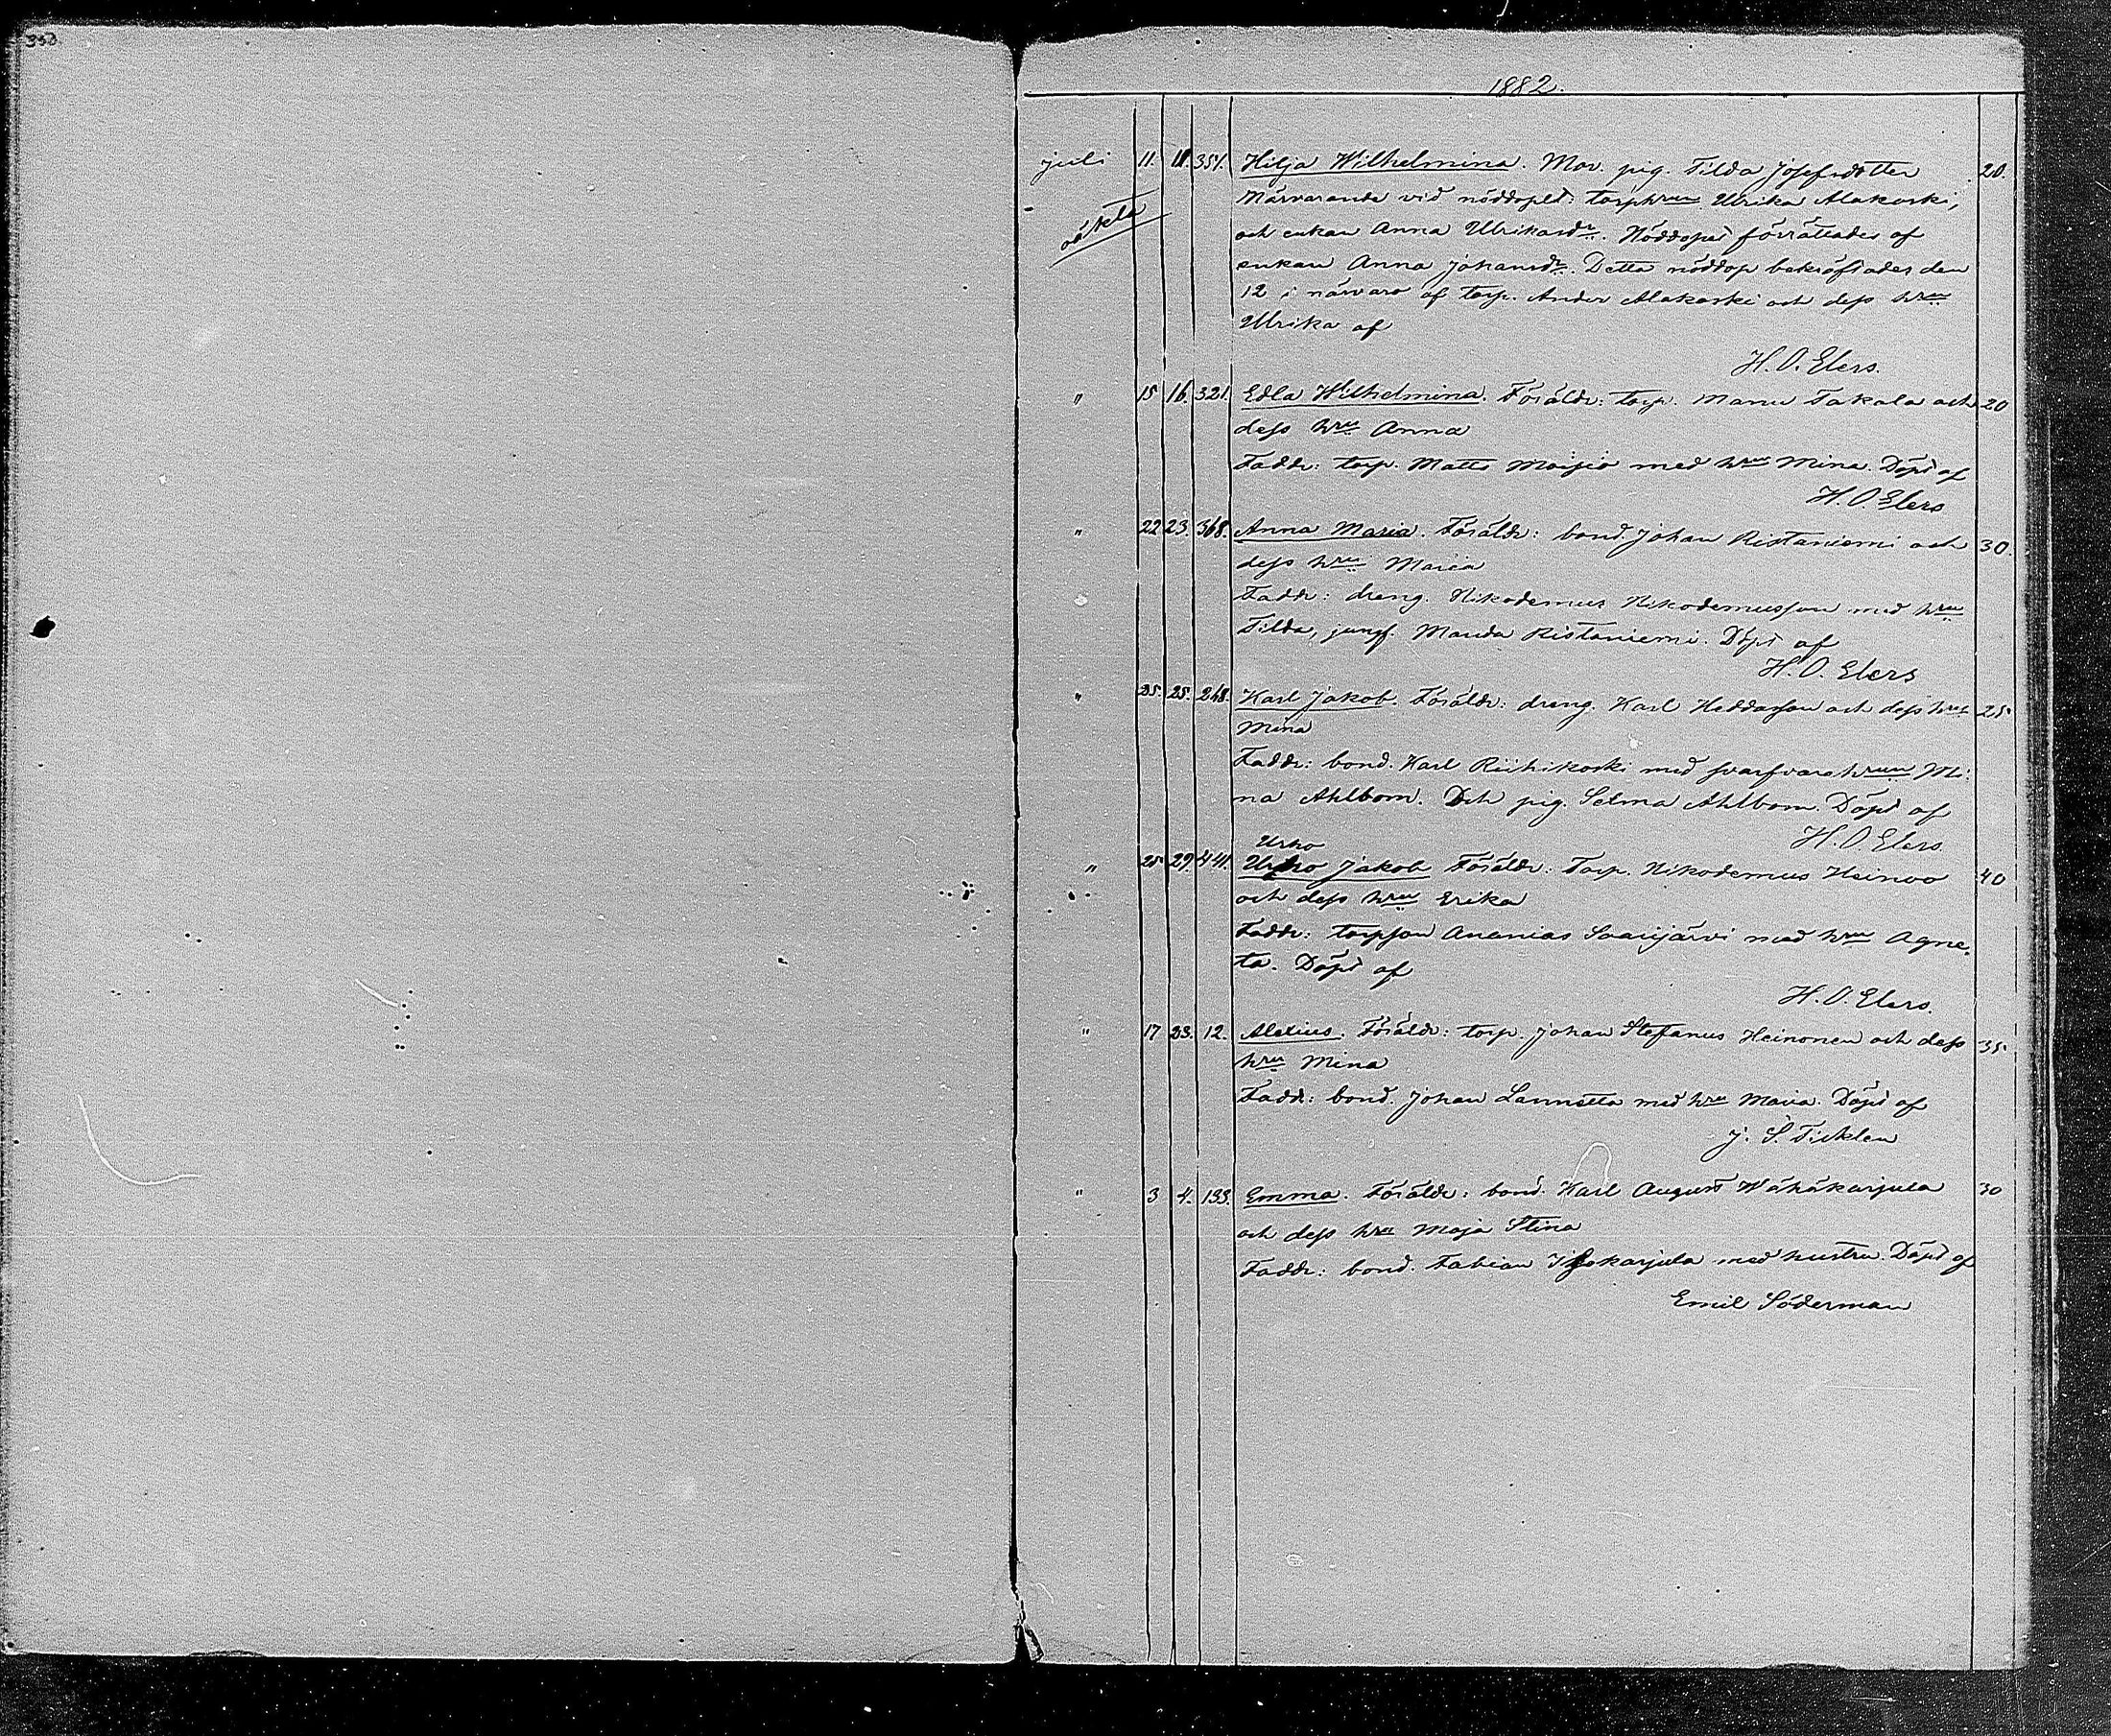 350.
1882.
juli 11. 11. 351. Hilja Wilhelmina. Mor. pig. Tilda Josefsdotter 20.
oäkta
Närvarande vid nöddopet: torphrun Ulrika Alakoski,
och enkan Anna Ulrikasdr. Nöddopet förrättades af
enkan Anna Johansdr. Detta nöddop bekräftades den
12 i närvaro af torp. Ander Alakoski och dess hru
Ulrika af
H. O. Elers.
" 15 16. 321. Edla Wilhelmina. Föräldr: torp. Manu Takala och 20
dess hru Anna
Faddr: torp. Matts Moisio med hru Mina. Döpt af
H. O. Elers
" 22 23. 368. Anna Maria. Föräldr: bond. Johan Ristaniemi och 30.
dess hru Maria
Faddr: dreng. Nikodemus Nikodemusson med hru
Tilda, jungf. Manda Ristaniemi. Döpt af
H. O. Elers
" 25. 25. 268. Karl Jakob. Föräldr: dreng. Karl Heddasson och dess hru 25
Mina
Faddr: bond. Karl Riihikoski med svarfvarehrun Mi-
na Ahlbom. Och pig. Selma Ahlbom. Döpt af
H. O. Elers
Urho
" 25 29. 441. Urho Jakob Föräldr: Torp. Nikodemus Heinoo 40
och dess hru Erika
Faddr: torpson Ananias Saarijärvi med hru Agne-
ta. Döpt af
H. O. Elers.
" 17 23. 12. Alexius. Föräldr: torp. Johan Stefanus Heinonen och dess 35
hru Mina
Faddr: bond. Johan Lannetta med hru Maria. Döpt af
J. S. Ticklen
" 3 4. 133. Emma. Föräldr: bond. Karl August Wähäkarjula 30
och dess hru Maja Stina
Faddr: bond. Fabian Isokarjula med hustru. Döpt af
Emil Söderman